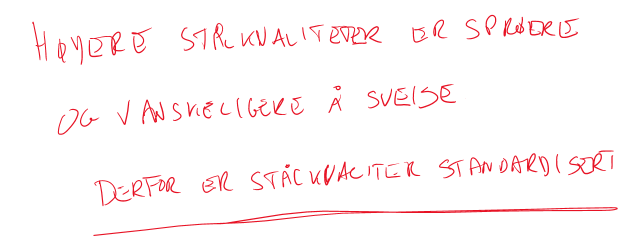 HØYERE STÅLKVALITETER ER SPRØERE
OG VANSKELIGERE Å SVEISE
DERFOR ER STÅLKVALITER STANDARDISERT